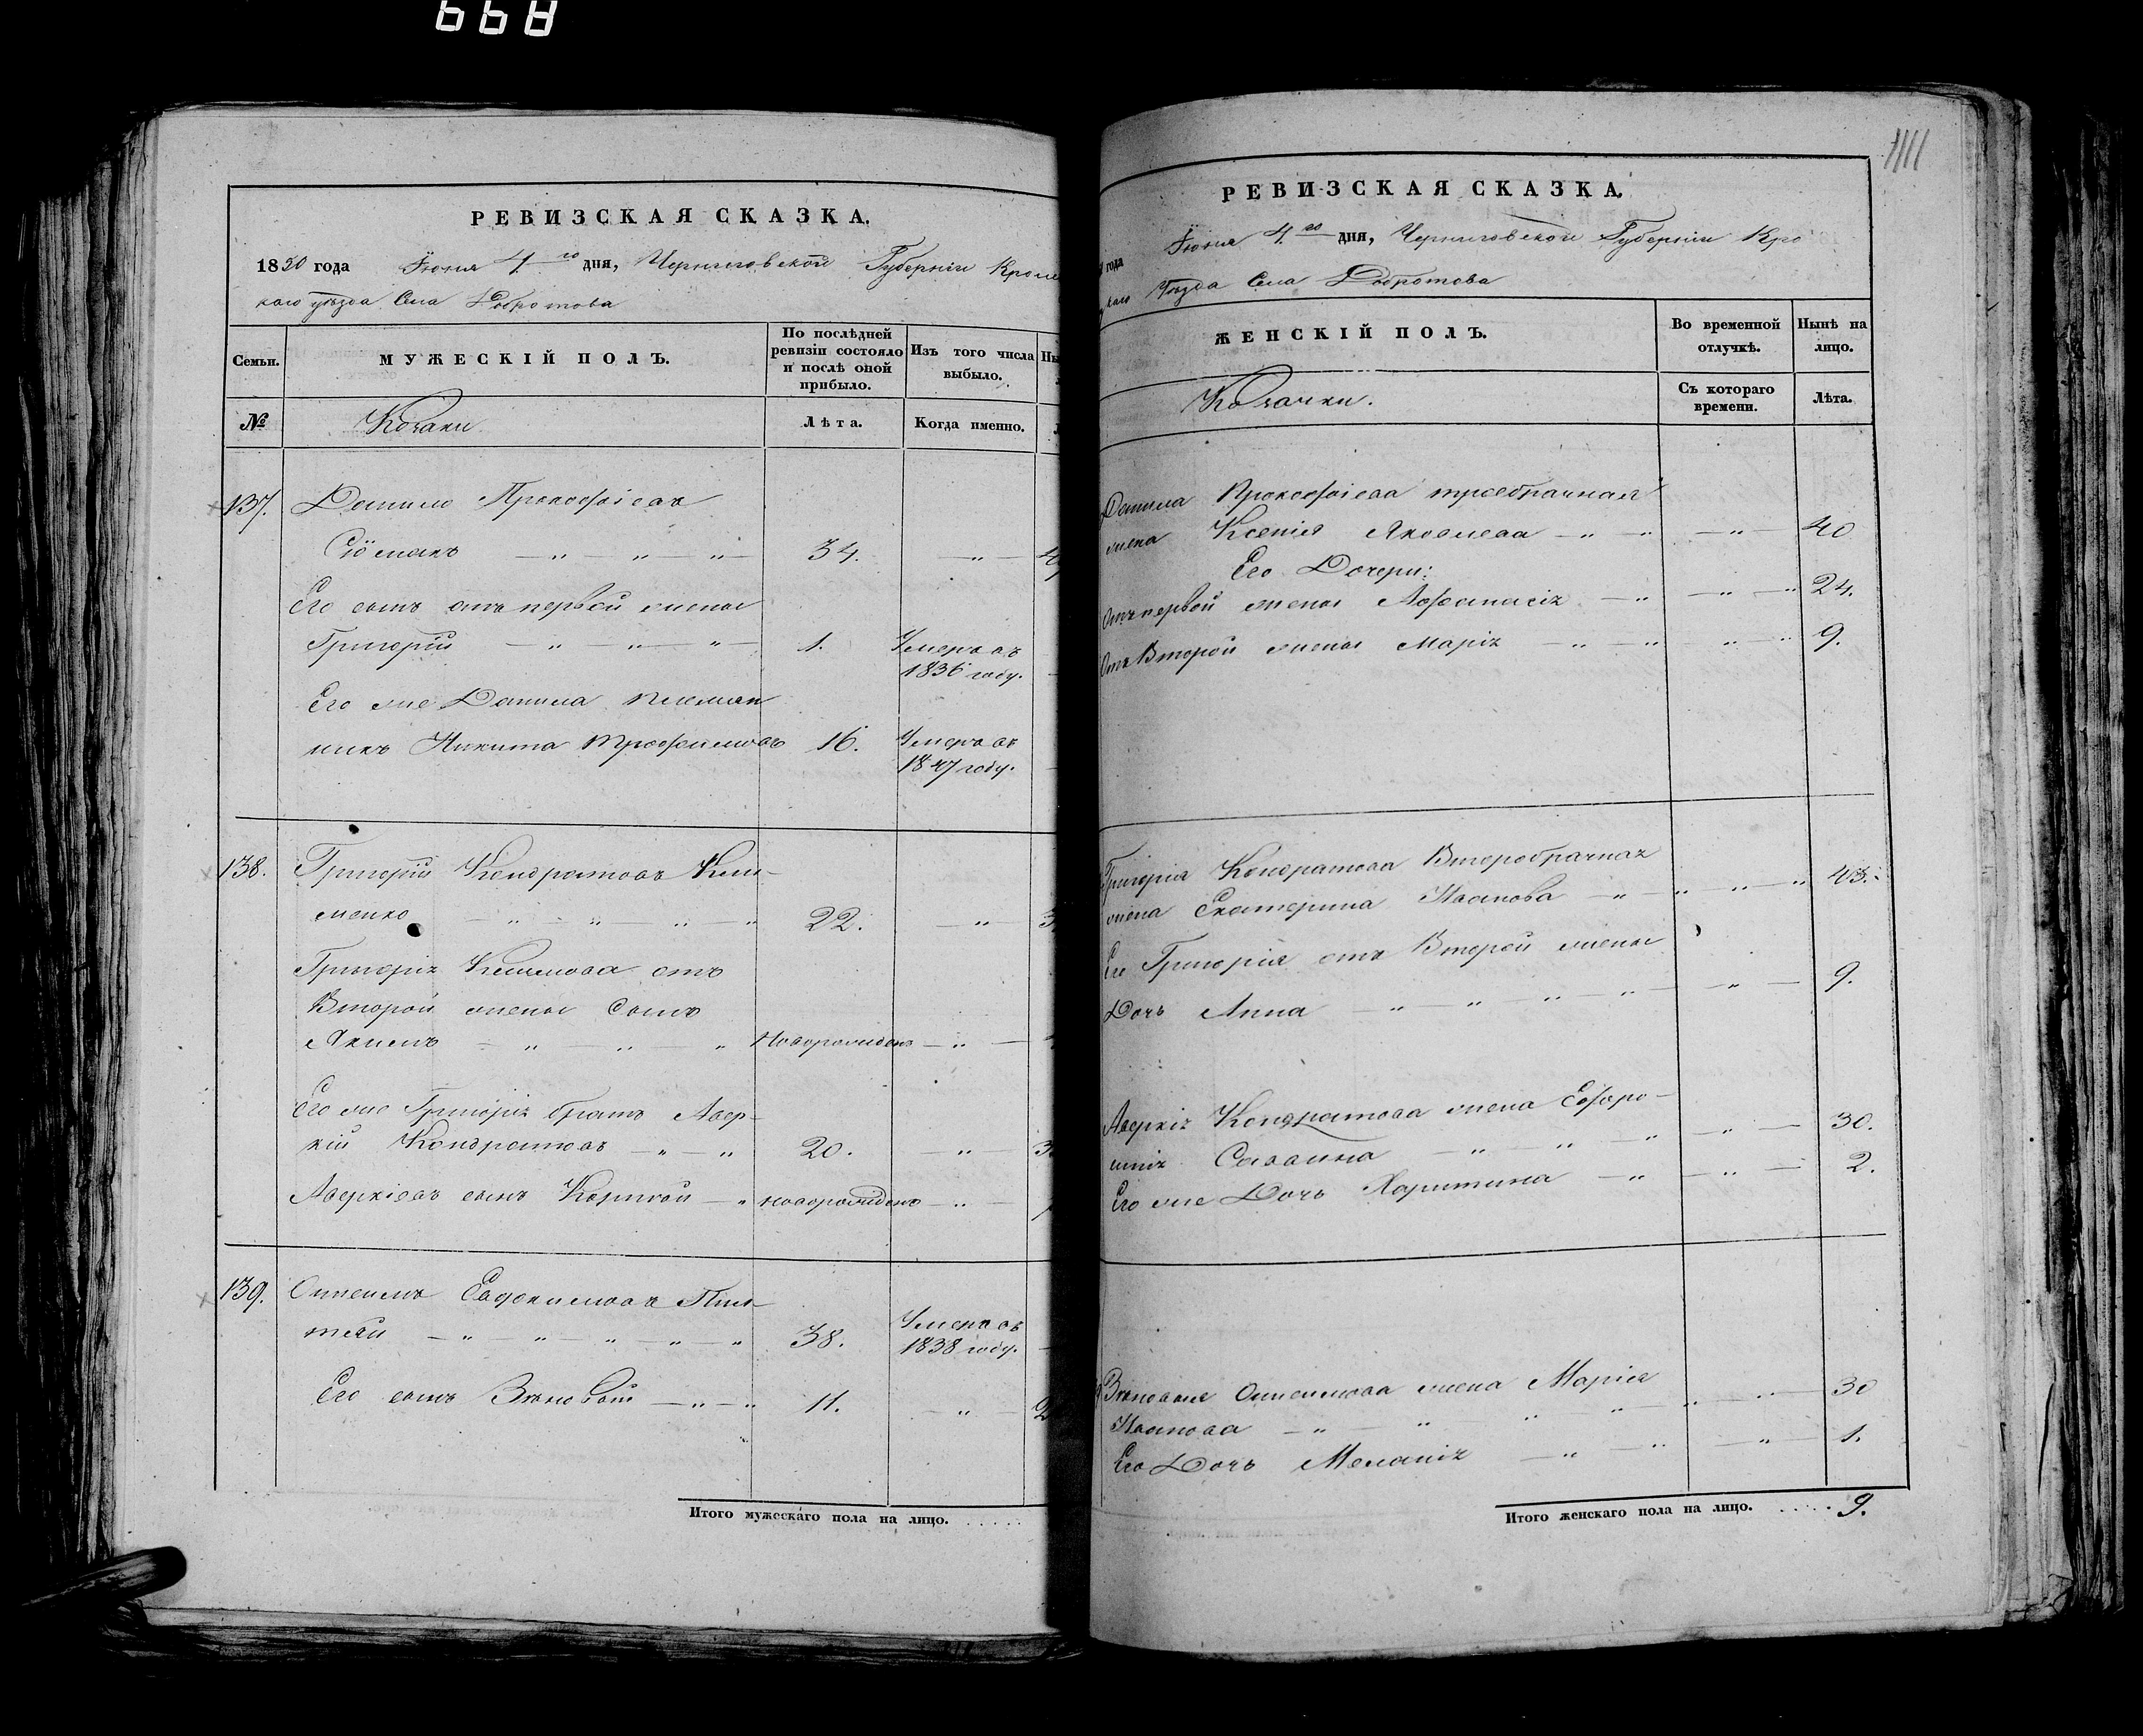 668
РЕВИЗСКАЯ СКАЗКА.
1850 года Іюня 4го дня, Черниговской Губерніи Кроле
каго уѣзда Села Добротова
Семьи.
МУЖЕСКІЙ ПОЛЪ.
По послѣдней ревизіи состояло и послѣ оной прибыло.
Изъ того числа выбыло.
№
Козаки
Лѣта.
Когда именно.
137. Данило Прокофіевъ
34.
Его сынъ отъ первой жены
Григорій 1. Умеръ въ
1836 году.
Его же Данила племян
никъ Никита Трофимовъ 16. Умеръ въ
1847 году.
138. Григорій Кондратовъ Кли-
менко 22.
Григорія отъ
Второй жены Сынъ
Якимъ Новорожденъ
Его же Григорія братъ Авер-
кій Кондратовъ 20.
Аверкіевъ сынъ Корнѣй новорожденъ
139. Евдокимовъ
38. Умеръ въ
1838 году.
Его сынъ Зѣновій 11.
Итого мужескаго пола на лицо.
1111
РЕВИЗСКАЯ СКАЗКА.
года Іюня 4го дня, Черниговской Губерніи Кро
каго Уѣзда Села Добротова
ЖЕНСКІЙ ПОЛЪ.
Во временной отлучкѣ.
Нынѣ на лицо.
Козачки.
Съ котораго времени.
Лѣта.
Данила Прокофіева треебрачная
жена Ксенія Яковлева 40
Его Дочери:
Отъ первой жены Афанасія 24.
Отъ Второй жены Марія 9.
Григорія Кондратова Второбрачная
жена Екатерина Иванова 43.
Его Григорія отъ Второй жены
Дочь Анна 9.
Аверкія Кондратова жена Ефро-
синія Саввина 30.
Его же Дочь Харитина 2.
Зѣновія жена Марія 30
Иванова
Его Дочь Меланія 1.
Итого женскаго пола на лицо. 9.